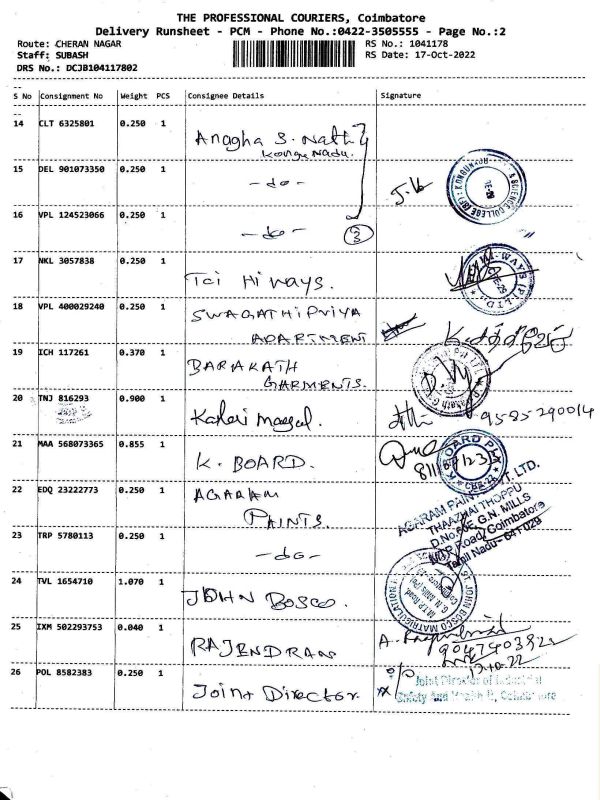 THE PROFESSIONAL COURIERS, Coimbatore
Delivery Runsheet - PCM - Phone No.:0422-3505555 - Page No.:2
Route: CHERAN NAGAR RS No.: 1041178
Staff: SUBASH RS Date: 17-Oct-2022
DRS No.: DCJB104117802
S No Consignment No Weight PCS Consignee Details Signature
14 CLT 6325801 0.250 1 Anagha S. Nath
15 DEL 901073350 0.250 1 -do-
16 VPL 124523066 0.250 1 -do- 3
17 NKL 3057838 0.250 1 Tci Hiways.
18 VPL 400029240 0.250 1 SWAGATHIPRIYA
APARTMENT
19 ICH 117261 0.370 1 BARAKATH
GARMENTS.
20 TNJ 816293 0.900 1 95-85-290014
21 MAA 568073365 0.855 1 K. BOARD.
K BOARD PK
CBE-22
22 EDQ 23222773 0.250 1 AGARAM
PAINTS.
AGARAM PAINTS PVT. LTD.
THAAZHAI THOPPU
G.N. MILLS
MTP Road, Coimbatore
Tamil Nadu- 641 029
23 TRP 5780113 0.250 1 -do-
24 TVL 1654710 1.070 1 JOHN BOSCO.
ST. JOHN BOSCO
25 IXM 502293753 0.040 1 RAJENDRAN
17.10.22
26 POL 8582383 0.250 1 Joint Director
Joint Director of Industrial
Safety And Health II, Coimbatore